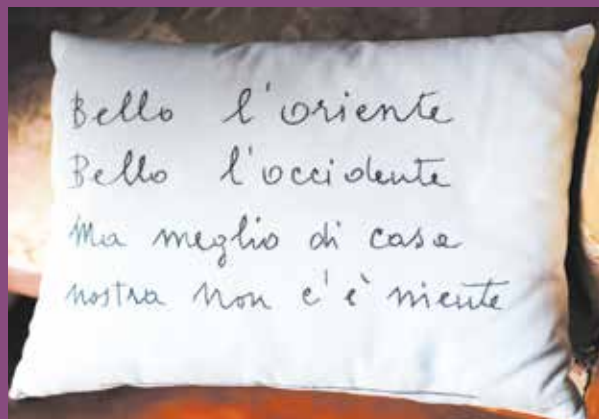 Bello l'oriente
Bello l'occidente
Ma meglio di casa
nostra non c'è niente